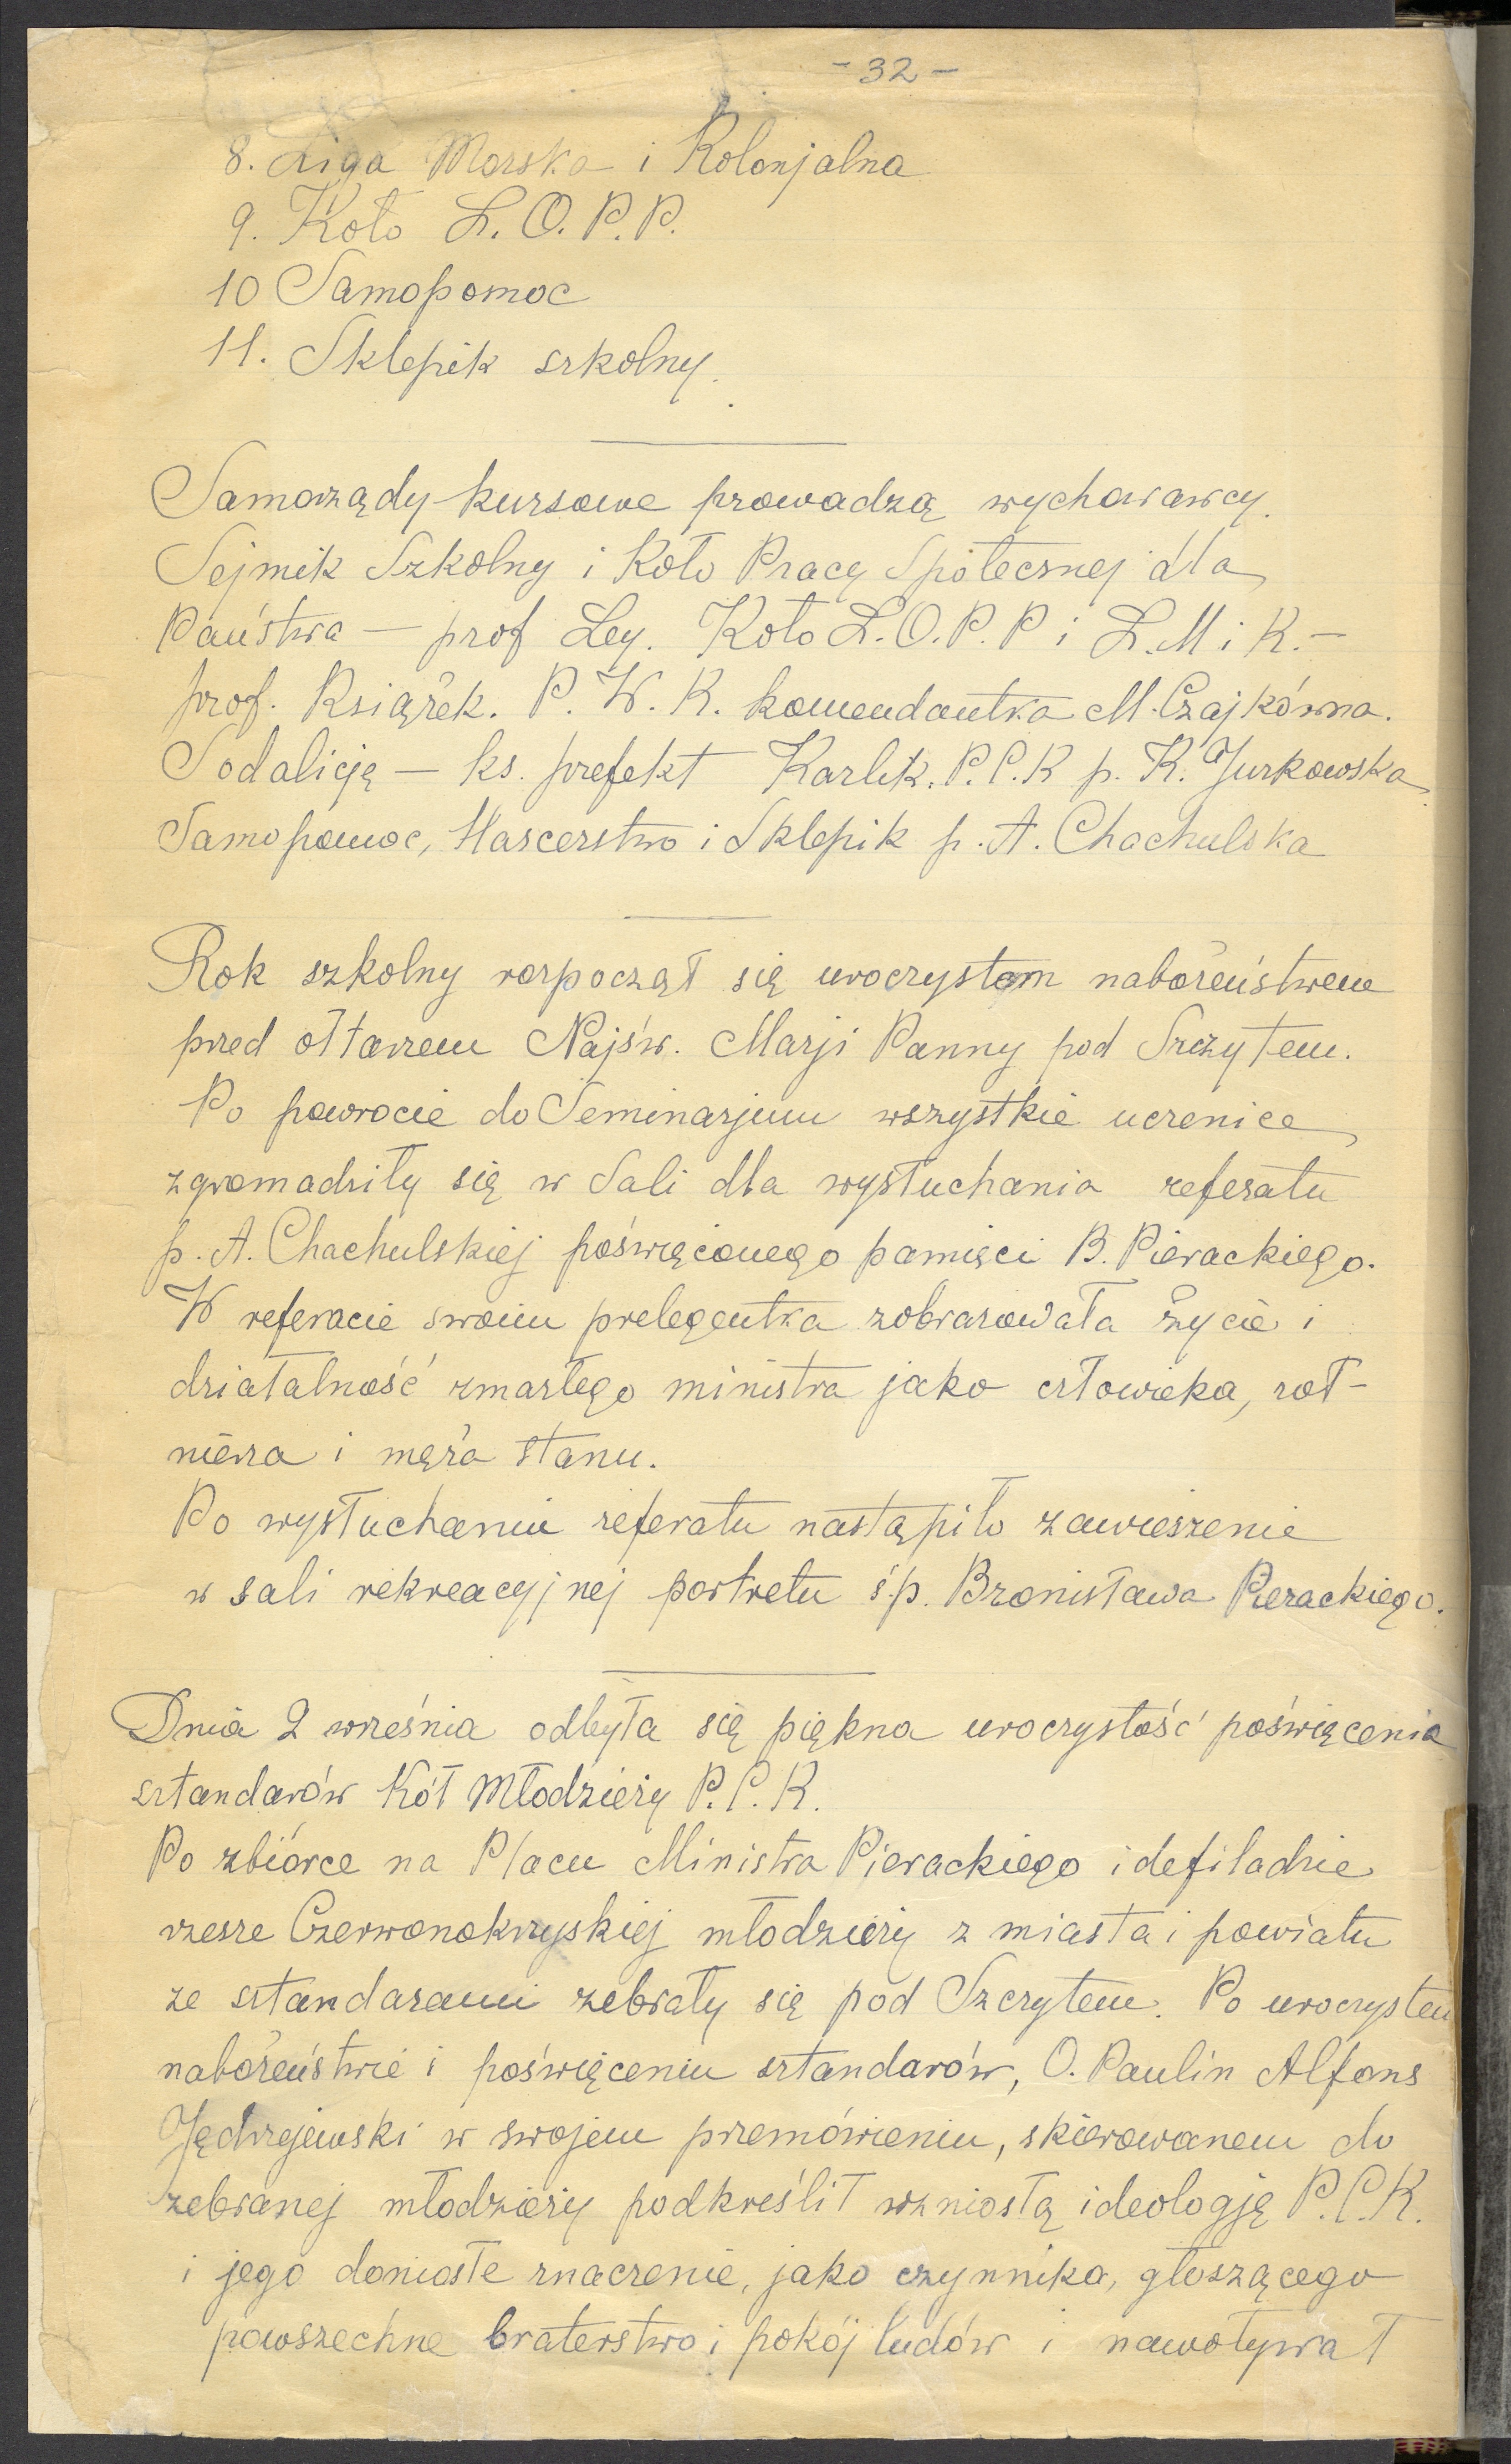 - 32 -
8. Liga Morska i Kolonjalna
9. Koło L. O. P. P.
10 Samopomoc
11. Sklepik szkolny.
Samorządy kursowe prowadzą wychowawcy.
Sejmik Szkolny i Koło Pracy Społecznej dla
Państwa — prof Ley. Koło L. O. P. P i L. M i K. —
prof. Książek. P. W. K. komendantka M. Czajkówna.
Sodalicję — ks. prefekt Karlik. P. C. K p. K. Jurkowska
Samopomoc, Harcerstwo i Sklepik p. A. Chachulska
Rok szkolny rozpoczął się uroczystem nabożeństwem
przed ołtarzem Najśw. Marji Panny pod Szczytem.
Po powrocie do Seminarjum wszystkie uczenice
zgromadziły się w Sali dla wysłuchania referatu
p. A. Chachulskiej poświęconego pamięci B. Pierackiego.
W referacie swoim prelegentka zobrazowała życie i
działalność zmarłego ministra jako człowieka, żoł-
nierza i męża stanu.
Po wysłuchaniu referatu nastąpiło zawieszenie
w sali rekreacyjnej portretu ś.p. Bronisława Pierackiego.
Dnia 2 września odbyła się piękna uroczystość poświęcenia
sztandarów Kół Młodzieży P. C. K.
Po zbiórce na Placu Ministra Pierackiego i defiladzie
rzesze Czerwonokrzyskiej młodzieży z miasta i powiatu
ze sztandarami zebrały się pod Szczytem. Po uroczystem
nabożeństwie i poświęceniu sztandarów, O. Paulin Alfons
Jędrzejewski w swojem przemówieniu, skierowanem do
zebranej młodzieży podkreślił wzniosłą ideologję P. C. K.
i jego doniosłe znaczenie, jako czynnika, głoszącego
powszechne braterstwo i pokój ludów i nawoływał